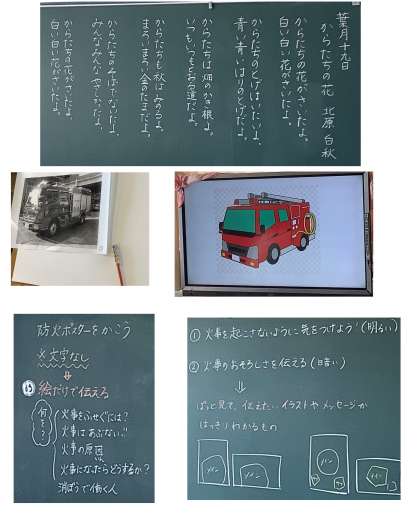 葉月十九日
からたちの花 北原白秋
からたちの花がさいたよ。
白い白い花がさいたよ。
からたちのとげはいたいよ。
青い青いはりのとげだよ。
からたちは畑のかき根よ。
いつもいつもとおる道だよ。
からたちも秋はみのるよ。
まろいまろい金のたまだよ。
からたちのそばでないたよ。
みんなみんなやさしかったよ。
からたちの花がさいたよ。
白い白い花がさいたよ。
防火ポスターをかこう
※文字なし
⇓
絵だけで伝える
何を?
火事をふせぐには?
火事はあぶない!!
火事の原因
火事になったらどうするか?
消ぼうで働く人
① 火事を起こさないように気をつけよう(明るい)
② 火事のおそろしさを伝える(暗い)
⇓
ぱっと見て、伝えたいイラストやメッセージが
はっきりわかるもの
メイン
メイン
メイン
メイン